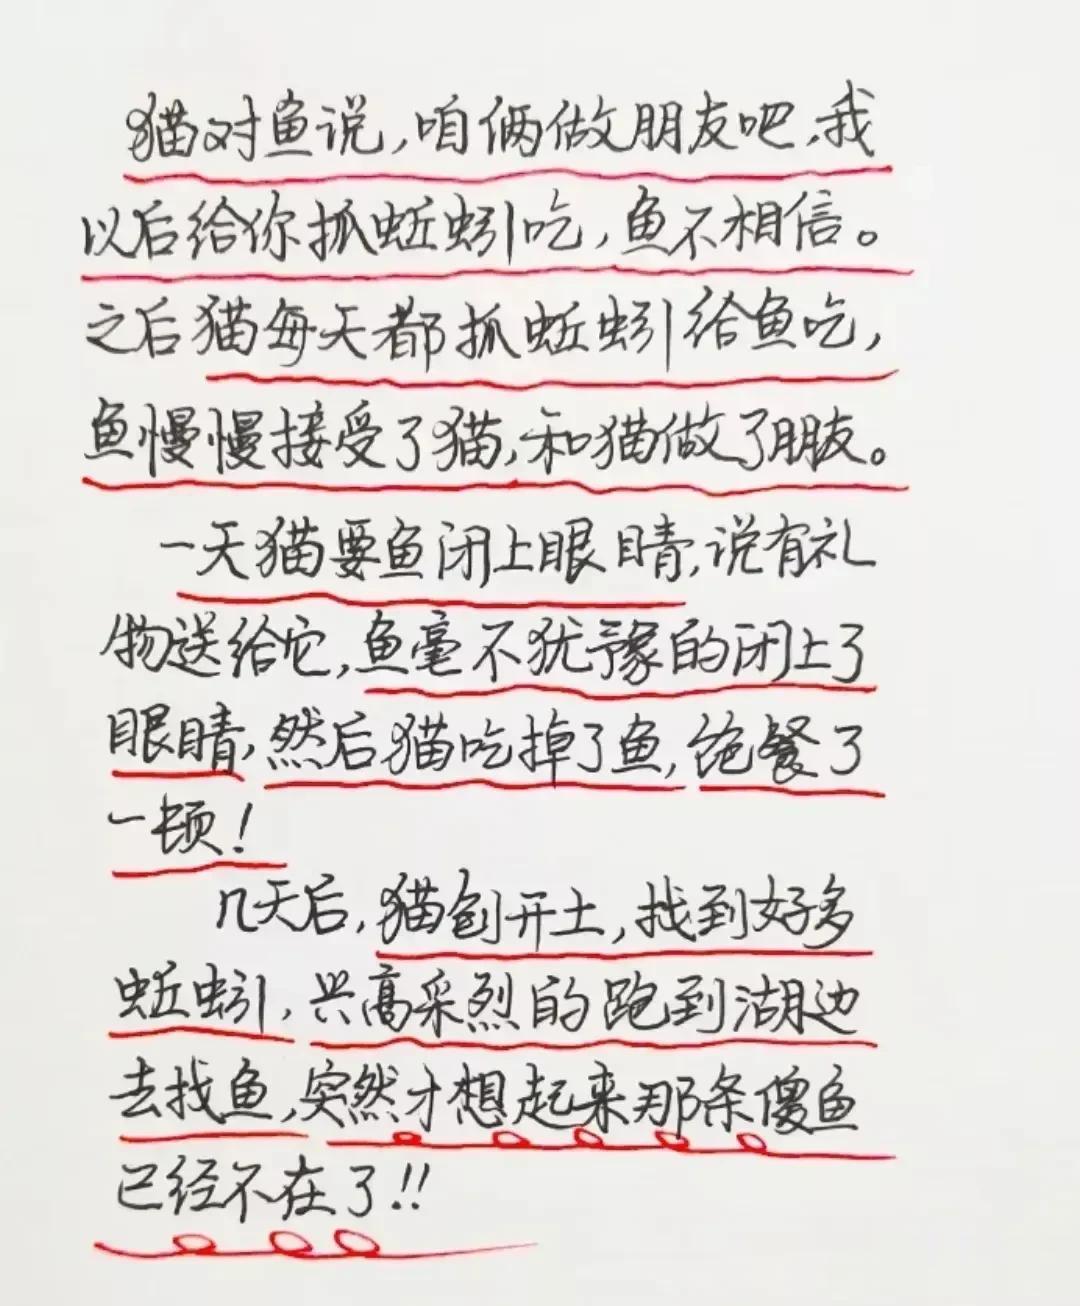 猫对鱼说,咱俩做朋友吧,我
以后给你抓蚯蚓吃,鱼不相信。
之后猫每天都抓蚯蚓给鱼吃,
鱼慢慢接受了猫,和猫做了朋友。
一天猫要鱼闭上眼睛,说有礼
物送给它,鱼毫不犹豫的闭上了
眼睛,然后猫吃掉了鱼,饱餐了
一顿!
几天后,猫刨开土,找到好多
蚯蚓,兴高采烈的跑到湖边
去找鱼,突然才想起来那条傻鱼
已经不在了!!